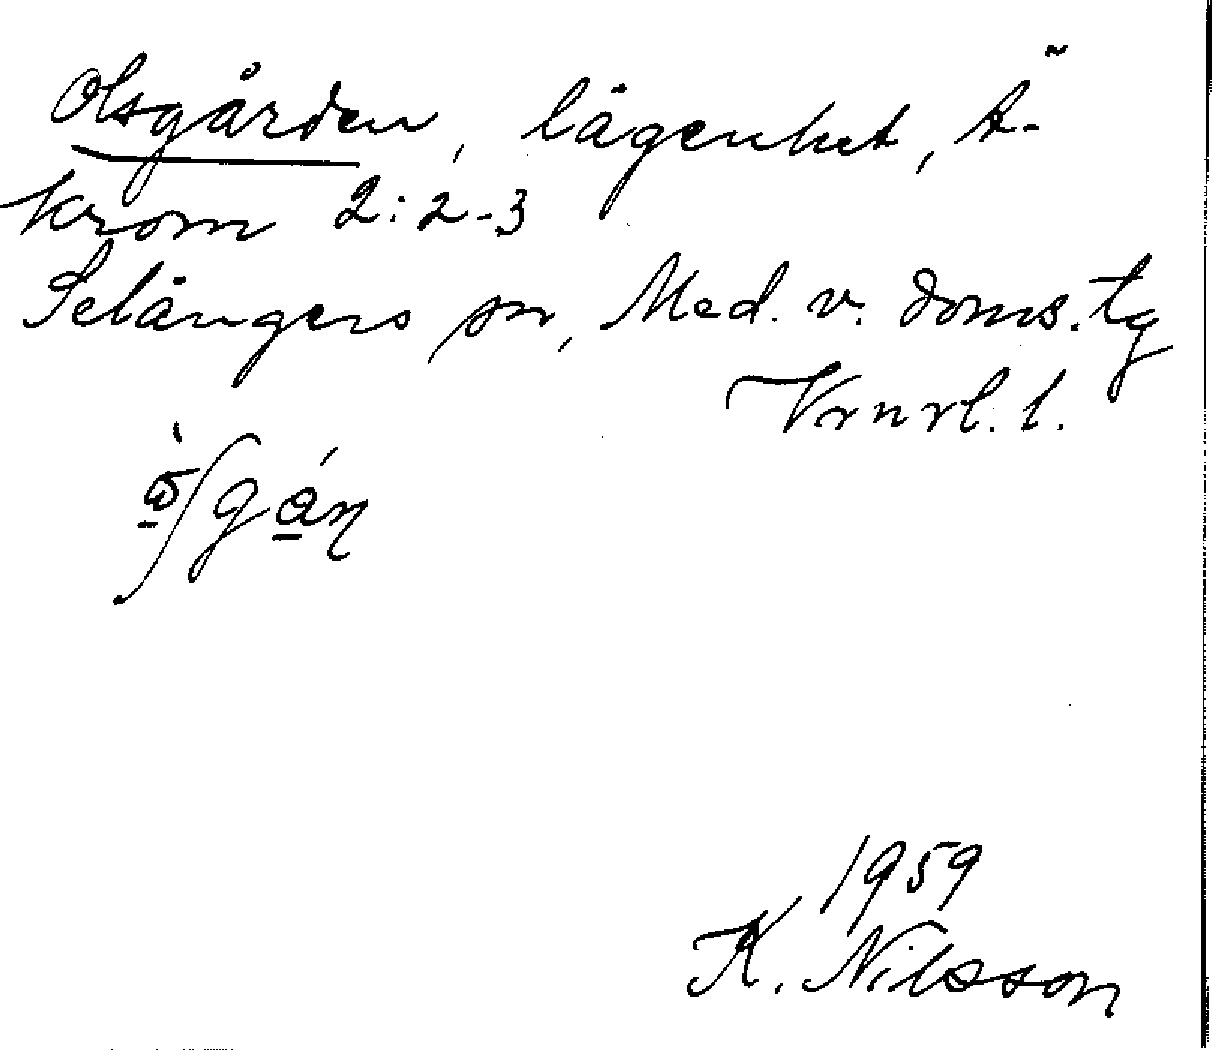 Olsgården, lägenhet, Ä-
krom 2:2-3
Selångers sn, Med. v. doms. tg
Vrnrl. l.
1959
K. Nilsson